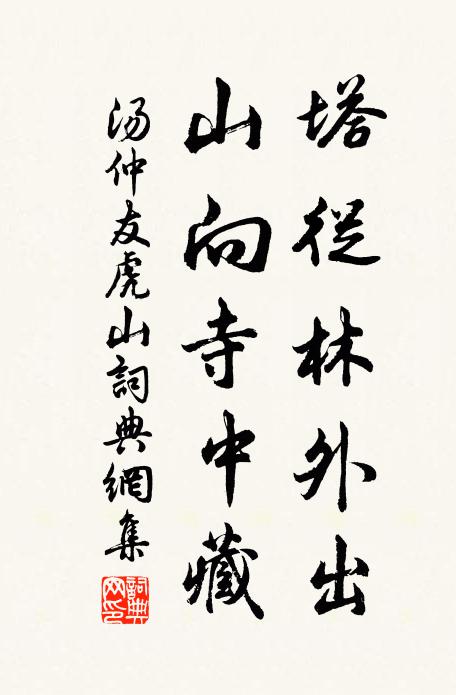 塔從林外出
山向寺中藏
汤仲友虎山詞典網集
詞典网印